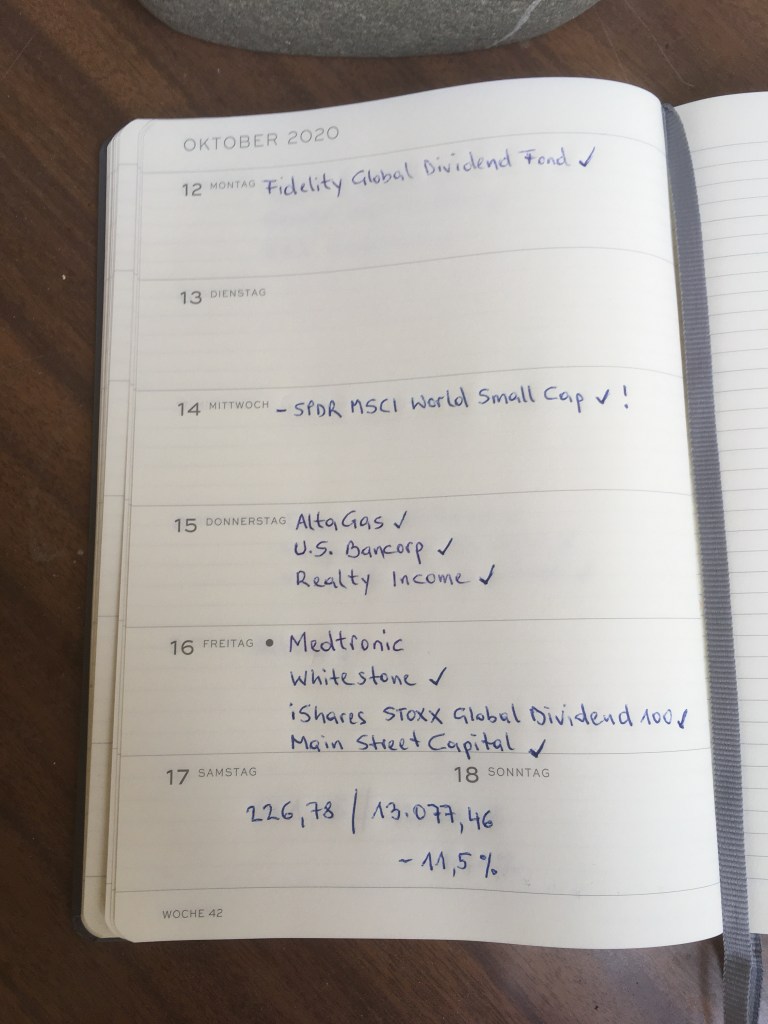 OKTOBER 2020
12 MONTAG Fidelity Global Dividend Fond ✓
13 DIENSTAG
14 MITTWOCH - SPDR MSCI World Small Cap ✓ !
15 DONNERSTAG AltaGas ✓
U.S. Bancorp ✓
Realty Income ✓
16 FREITAG ● Medtronic
Whitestone ✓
iShares STOXX Global Dividend 100 ✓
Main Street Capital ✓
17 SAMSTAG 18 SONNTAG
226,78 / 13.077,46
- 11,5 %
WOCHE 42